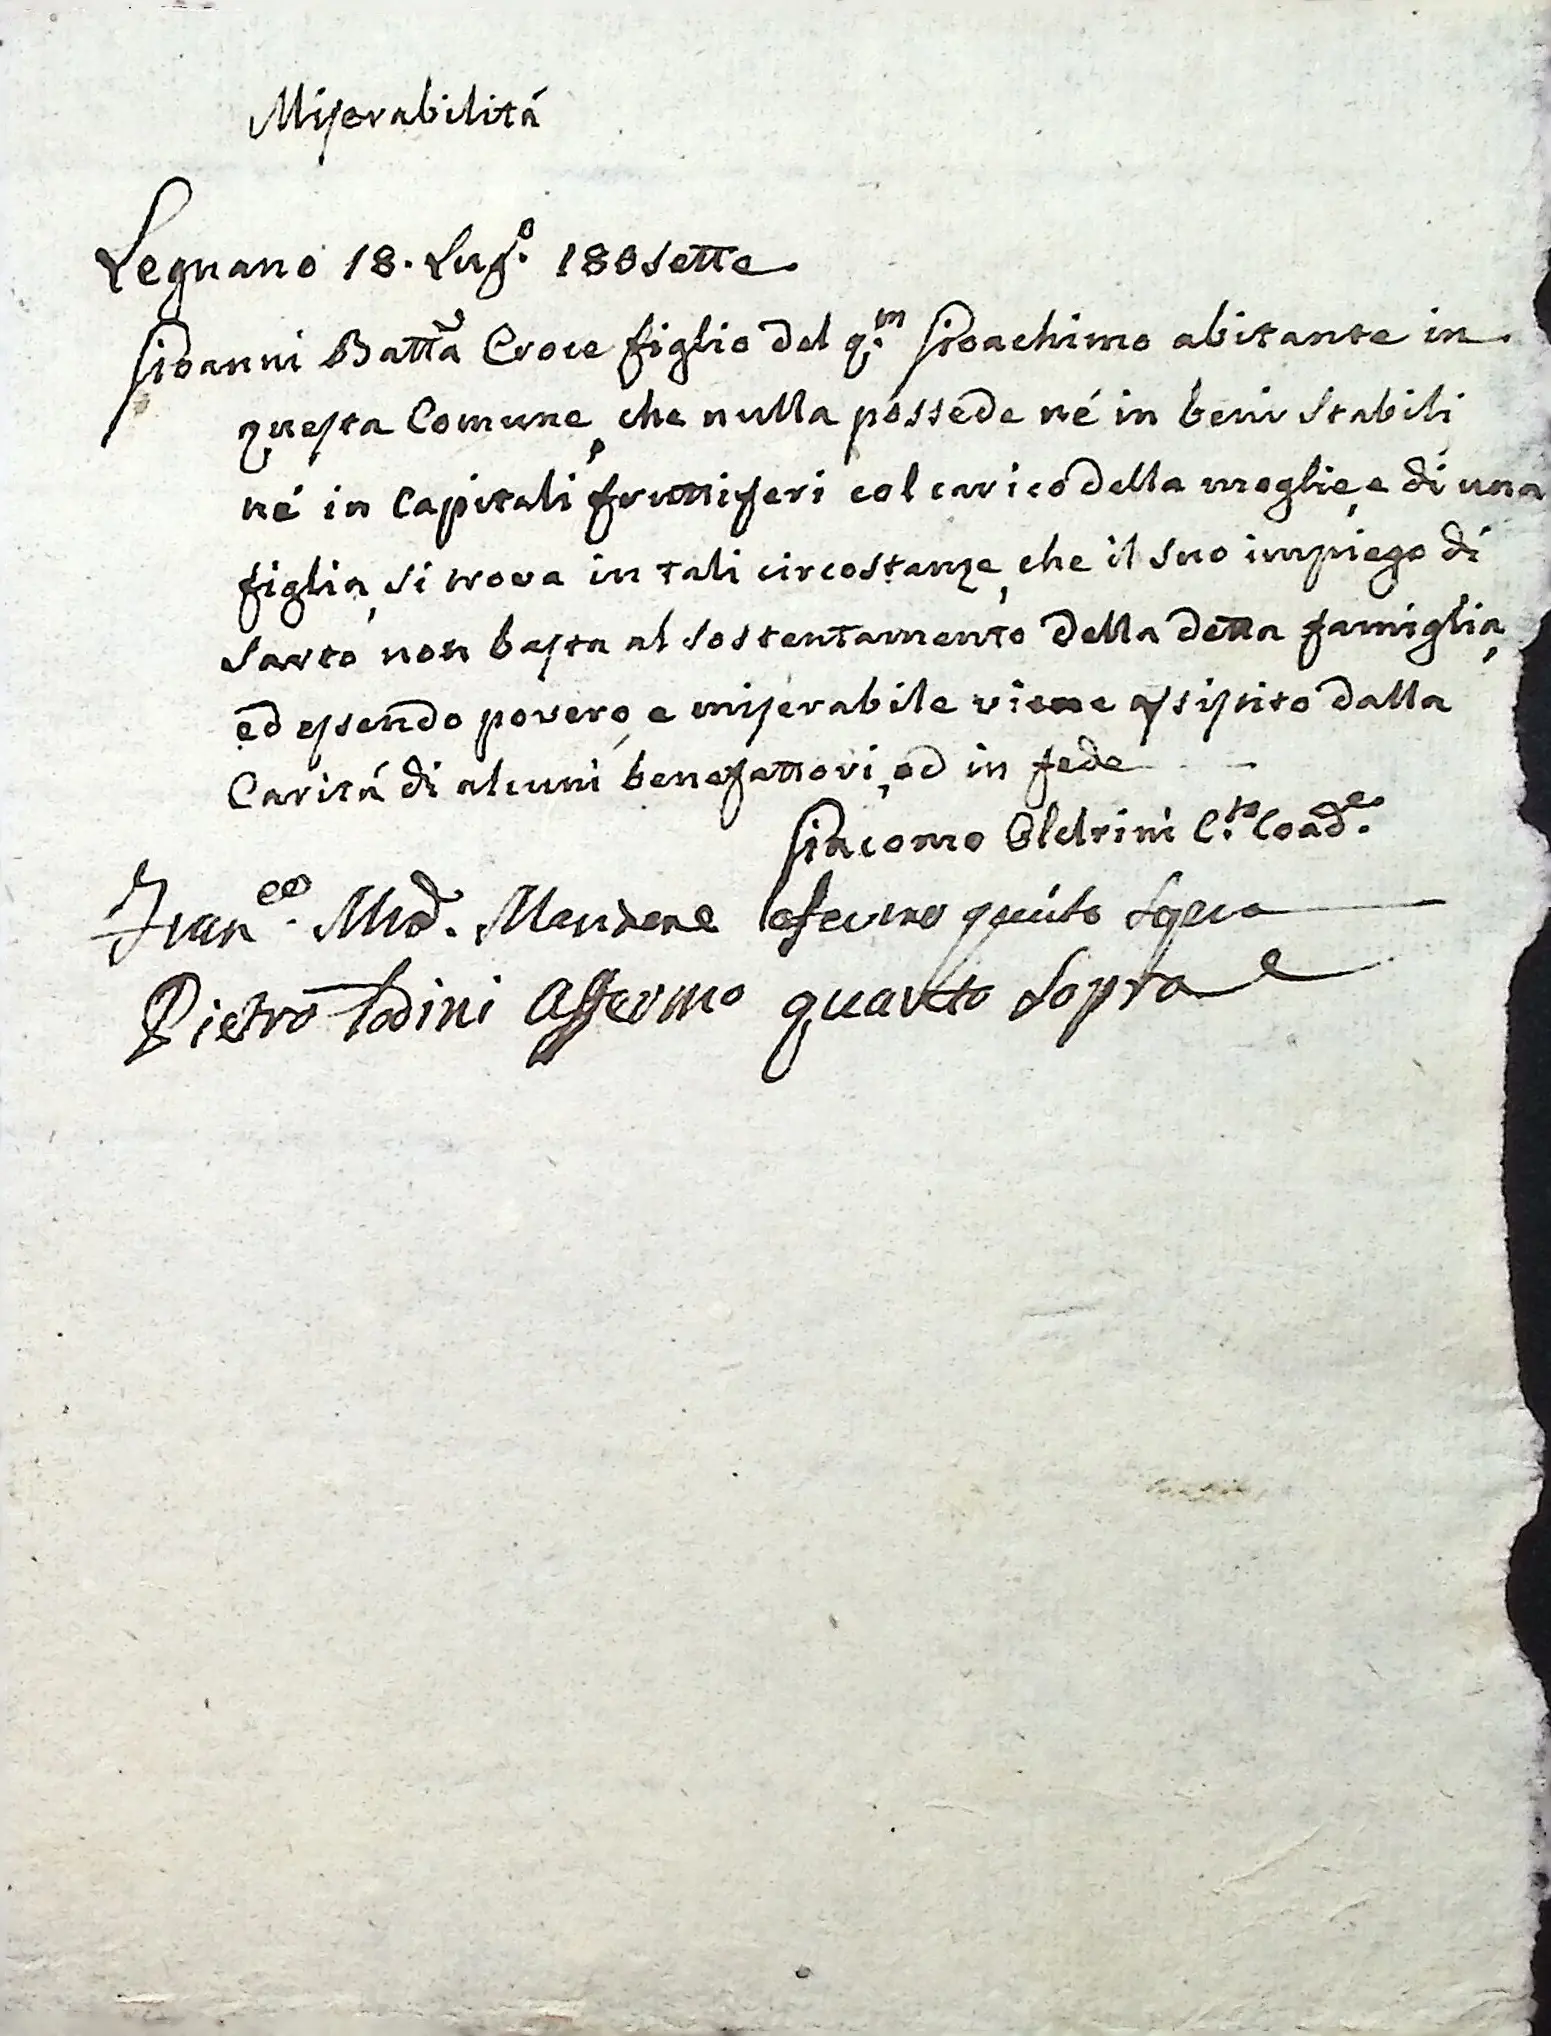 Miserabilitá
Legnano 18. Lug.o 180sette.
Gioanni Batta Croce figlio del q.m Gioachimo abitante in
questa Comune, che nulla possede né in beni stabili
né in Capitali fruttiferi col carico della moglie, e di una
figlia, si trova in tali circostanze, che il suo impiego di
Sarto non basta al sostentamento della detta famiglia,
ed essendo povero, e miserabile viene assistito dalla
Caritá di alcuni benefattori, ed in fede
Giacomo Oldrini C.to Coad.e
Fran.co affermo quanto Sopra
Pietro Todini Affermo quanto Sopra